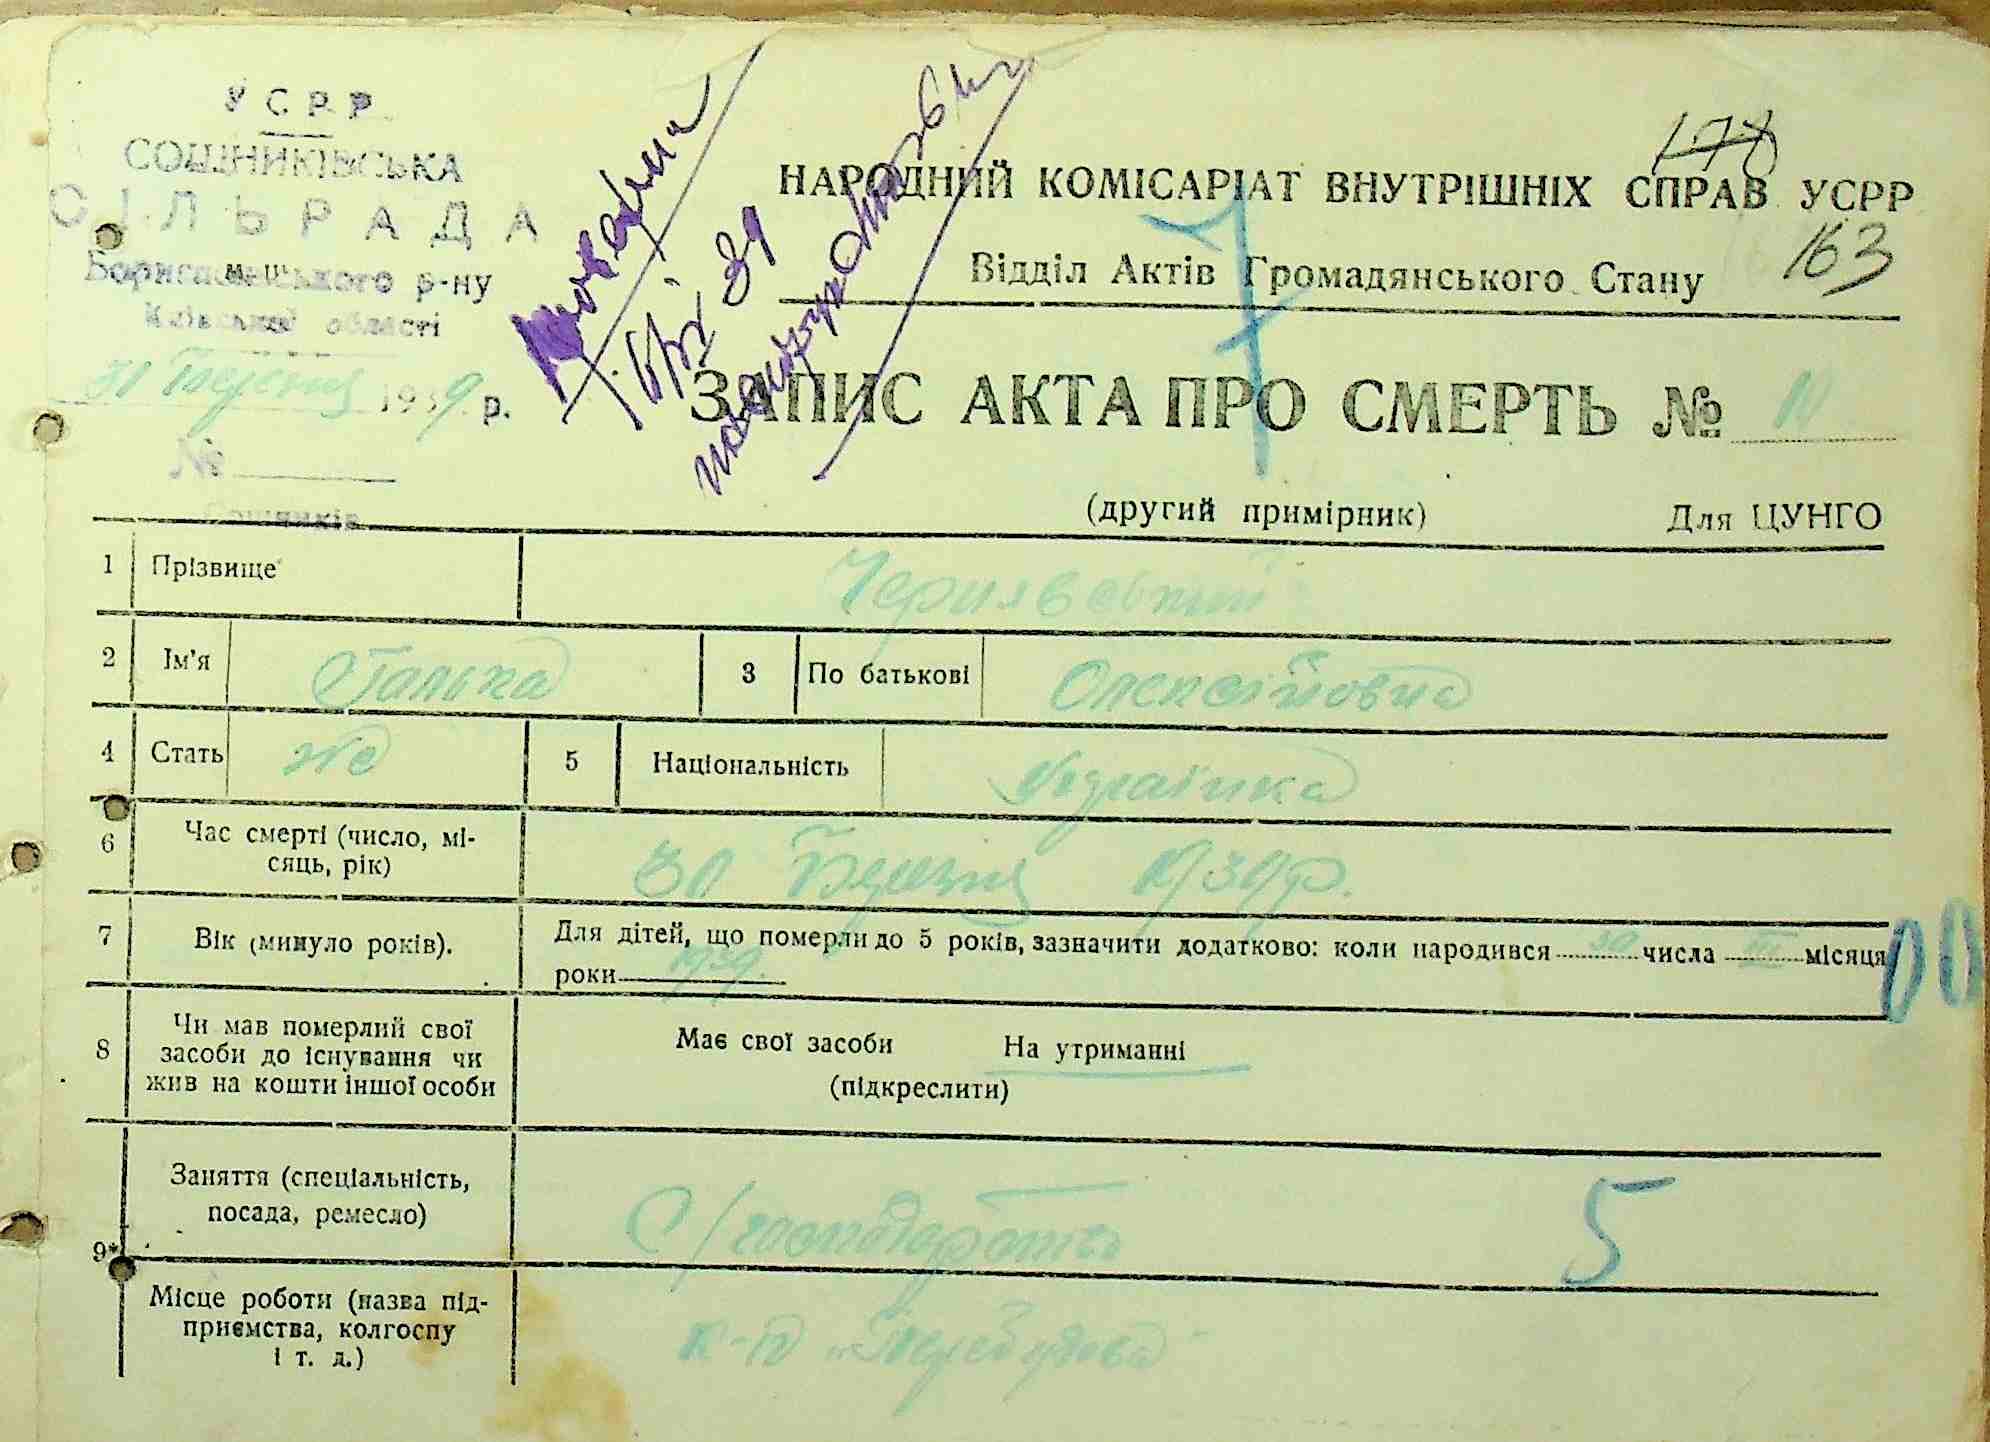 У С Р Р
СОШНИКІВСЬКА
СІЛЬРАДА
Бориспільського р-ну
Київської області
31 Березня 1939 р.
№
Сошників
178
НАРОДНИЙ КОМІСАРІАТ ВНУТРІШНІХ СПРАВ УСРР
163
Відділ Актів Громадянського Стану
7
ЗАПИС АКТА ПРО СМЕРТЬ №
(другий примірник) Для ЦУНГО
1 Прізвище Чернявський
2 Ім'я Галька 3 По батькові Олексійовна
4 Стать жо 5 Національність Українка
6 Час смерті (число, мі-
сяць, рік) 30 Березня 1939 р.
7 Вік (минуло років). Для дітей, що померли до 5 років, зазначити додатково: коли народився 30 числа III місяця
роки 1939. 00
8 Чи мав померлий свої
засоби до існування чи
жив на кошти іншої особи
Має свої засоби На утриманні
(підкреслити)
9* Заняття (спеціальність,
посада, ремесло) С/господарство 5
Місце роботи (назва під-
приємства, колгоспу
і т. д.)